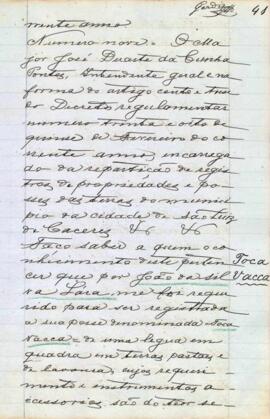 41
nente anno
Numero nove. O Ma
jor José Duarte da Cunha
Pontes, Intendente geral e na
forma do artigo cento e
do Decreto regulamentar
numero trinta e oito de
quinse de Fevereiro do co
rrente anno, encarrega
do da repartição de regis
tros de propriedades e pos
ses das terras do munici
pio da cidade de São Luiz
de Caceres &. &.
Faço saber a quem o co
nhecimento deste perten
cer que por João da Sil
va Lara, me foi reque
rido para ser registrada
a sua posse denominada Toca
Vacca = de uma legua em
quadra em terras pastaes e
de lavoura, cujos requeri
mento e instrumentos a
ccessorios são do teor se
Toca
Vacca